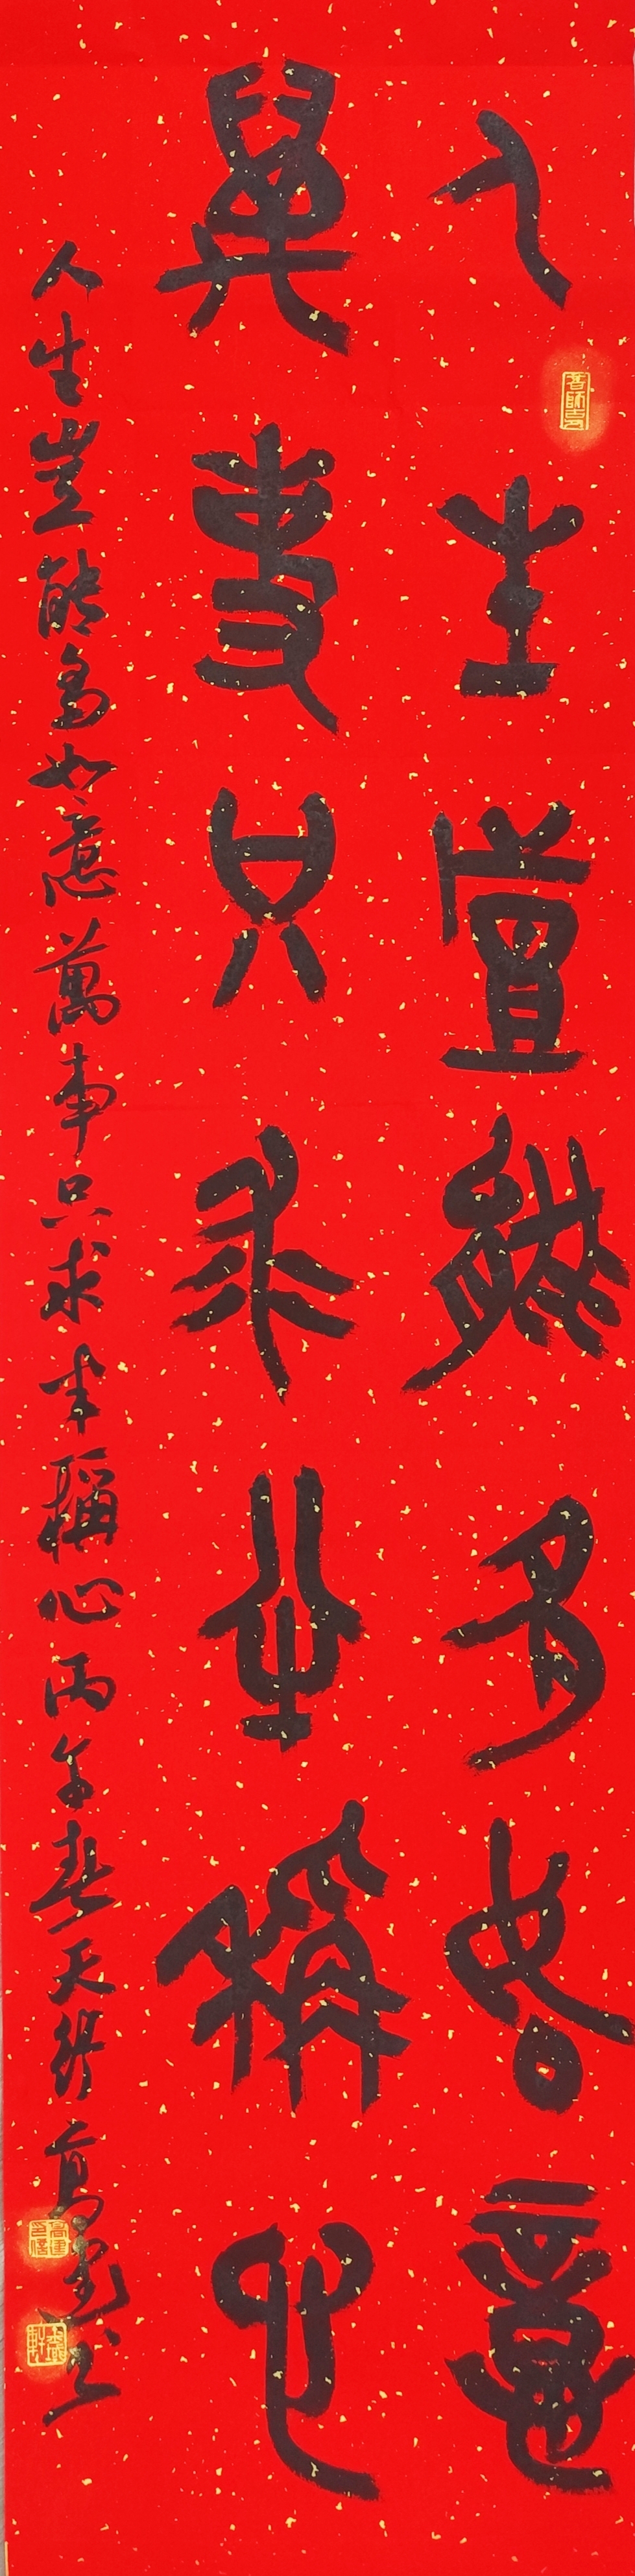 人生豈能多如意
萬事只求半稱心
人生豈能多如意萬事只求半稱心丙午春天高書